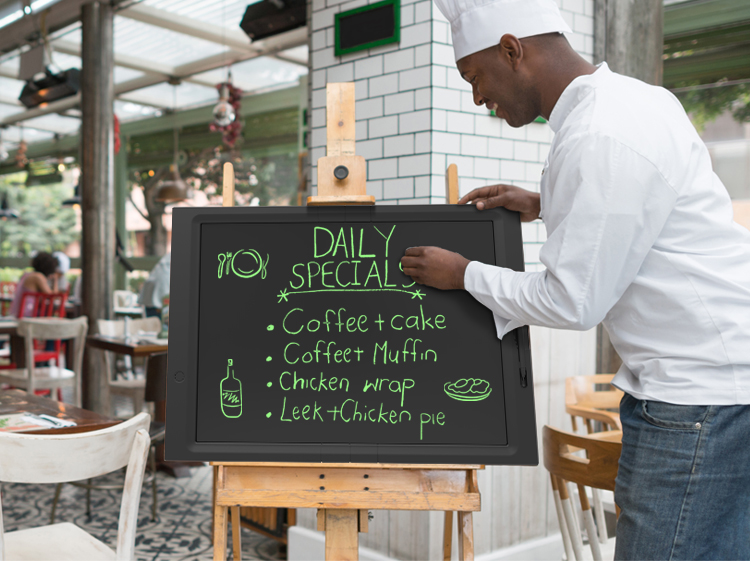 DAILY
SPECIALS
• Coffee + cake
• Coffee + Muffin
• Chicken wrap
• Leek + Chicken pie